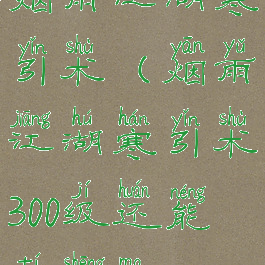 烟雨江湖寒
yǐn shù yān yǔ
引术(烟雨
jiāng hú hán yǐn shù
江湖寒引术
jí huán néng
300级还能
shēng ma